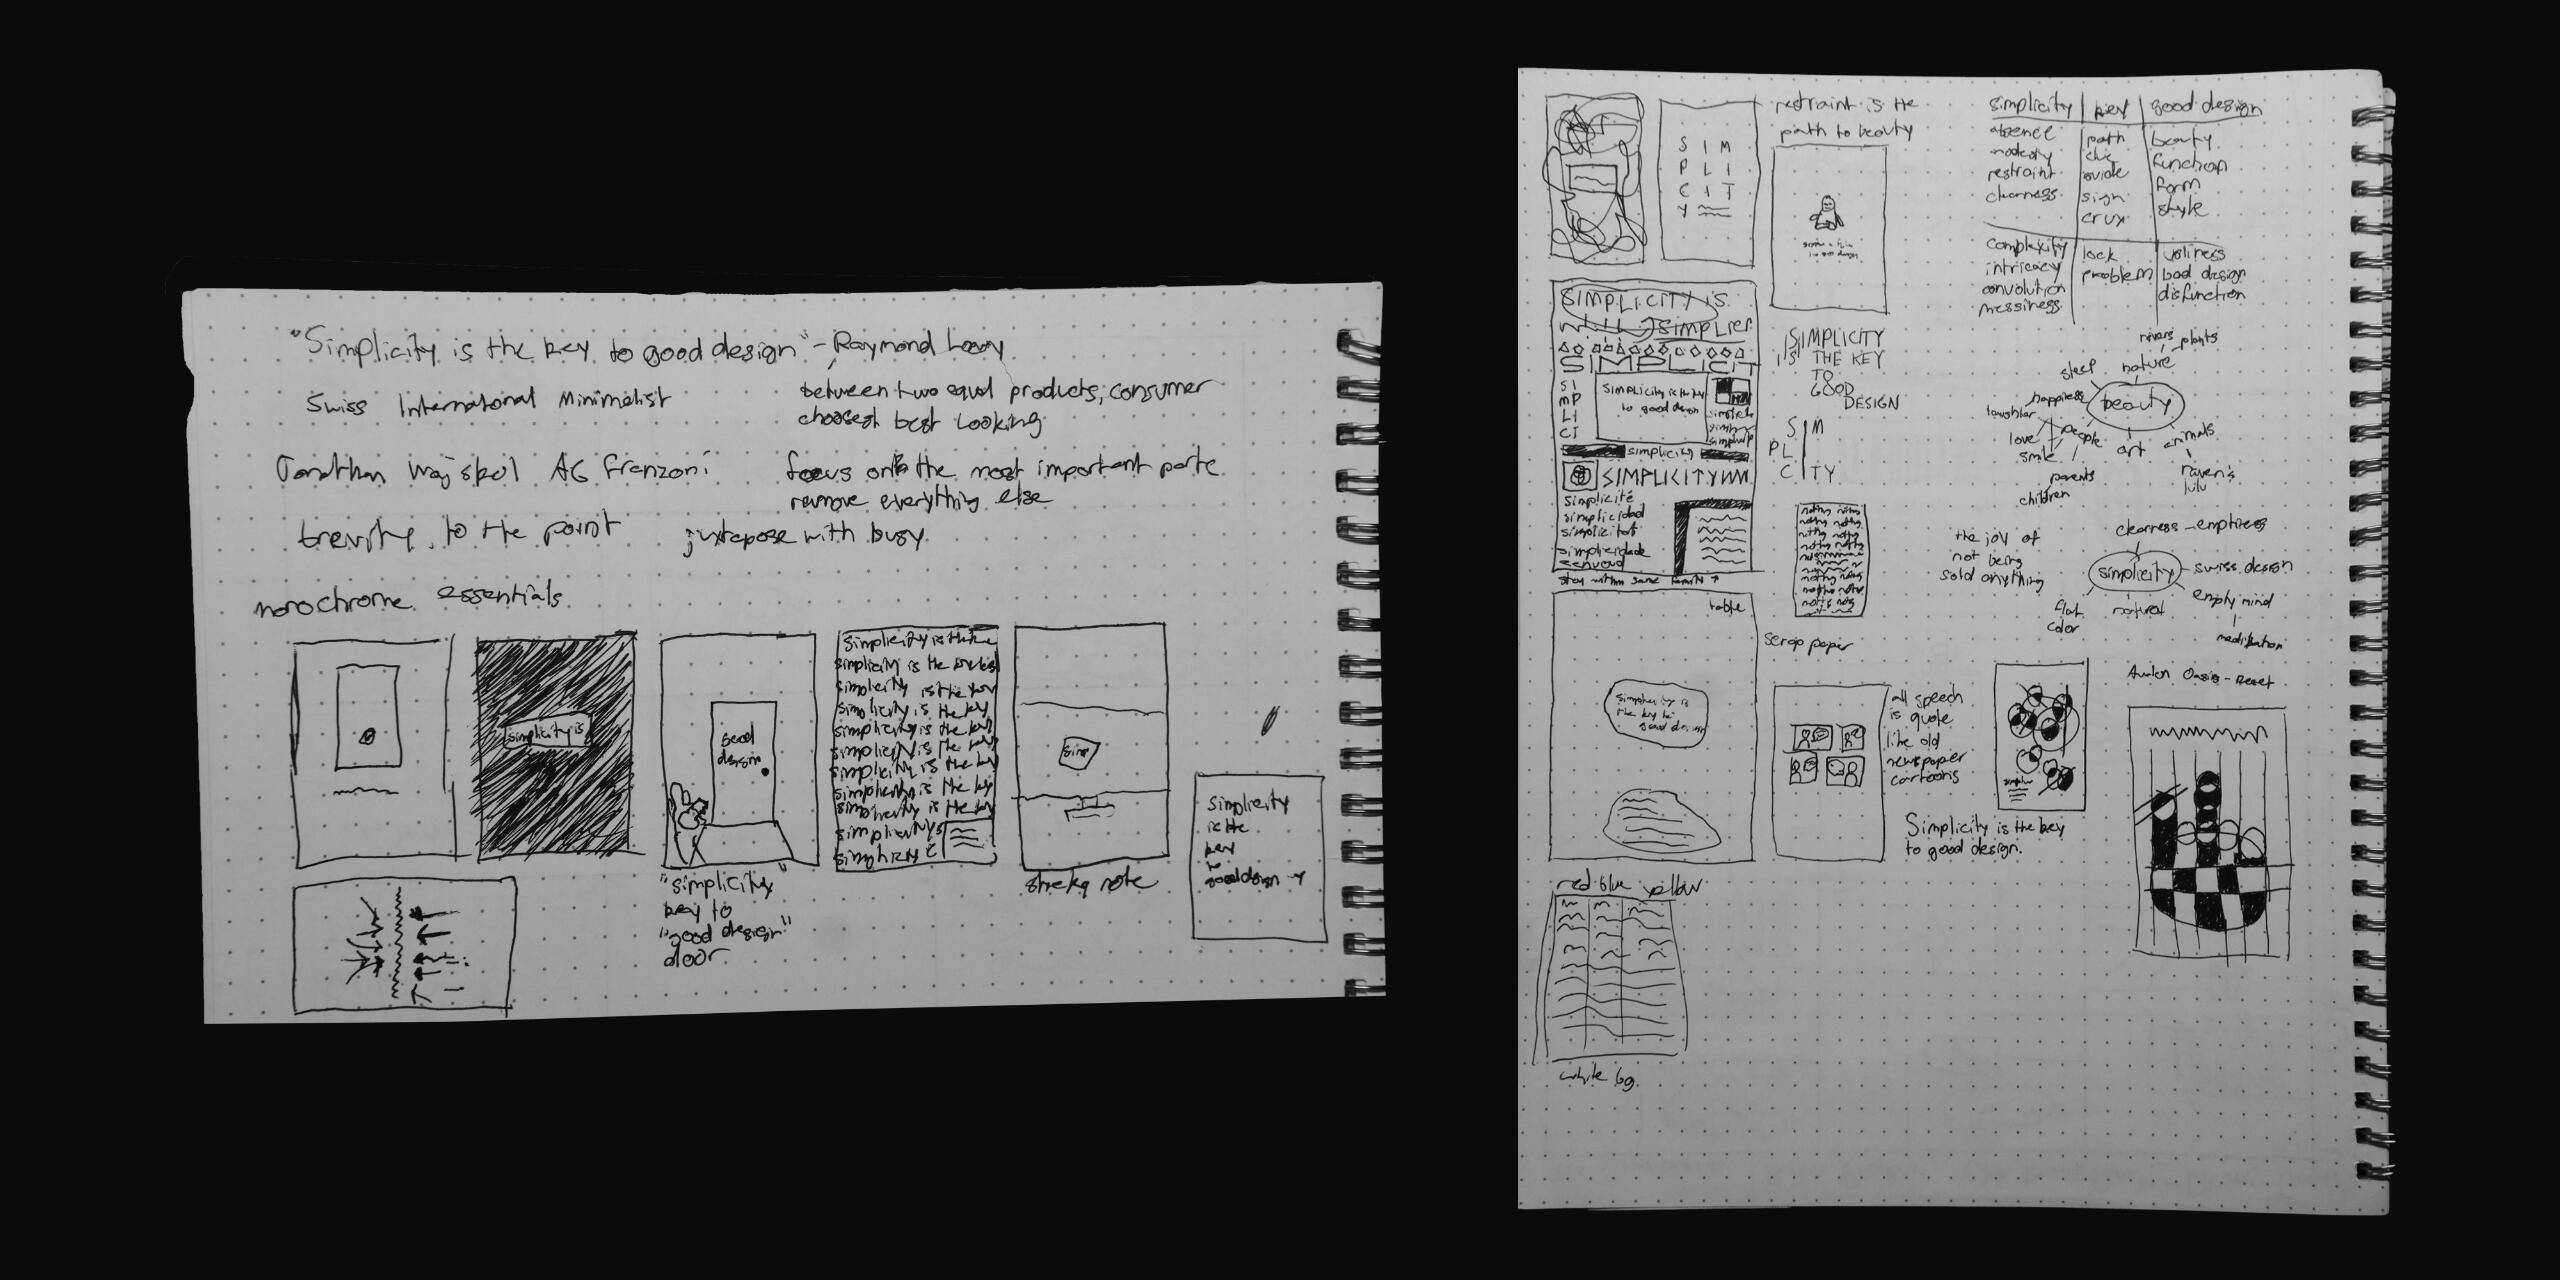 "Simplicity is the key to good design" - Raymond Loewy
Swiss International Minimalist
between two equal products, consumer
chooses best looking
Jonathan AG Franzoni
focus on the most important parts
remove everything else
brevity, to the point
juxtapose with busy
monochrome essentials
simplicity is
Good
design
Simplicity is the
simplicity is the
simplicity is the
simplicity is the key
simplicity is the key
simplicity is the key
simplicity is the key
simplicity is the key
simplicity is the key
simplicity
"simplicity"
key to
"good design"
door
simp
sticky note
simplicity
is the
key
to
good design
restraint is the
path to beauty
S I M
P L I
C I T
Y
SIMPLICITY IS
SIMPLIER
SIMPLICIT
SI
MP
LI
CI
simplicity is the key
to good design
simplicity
SIMPLICITY
simplicité
simplicidad
stay within same
SIMPLICITY
IS THE KEY
TO
GOOD
DESIGN
S M
PL
C TY
table
simplicity is
the key to
good design
scrap paper
all speech
is quote
like old
newspaper
cartoons
Simplicity is the key
to good design.
red blue yellow
white bg
simplicity key good design
absence path beauty
modesty clue function
restraint guide form
clearness sign style
crux
complexity lock ugliness
intricacy problem bad design
convolution disfunction
messiness
rivers plants
sleep nature
happiness beauty
laughter
love people art animals
smile
parents
children
clearness - emptiness
the joy of
not being
sold anything
simplicity - swiss design
empty mind
flat natural
color
meditation